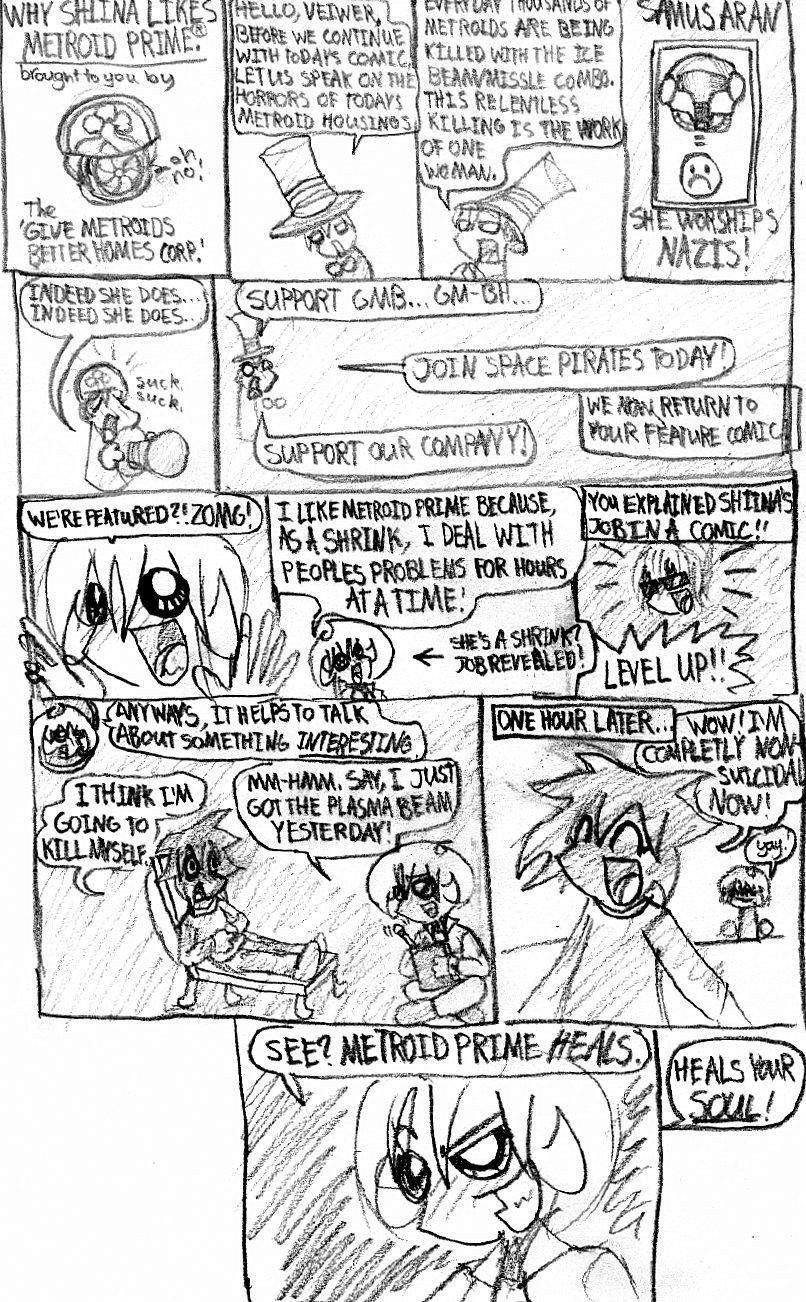 WHY SHIINA LIKES
METROID PRIME.®
brought to you by
oh,
no!
The
'GIVE METROIDS
BETTER HOMES CORP.'
HELLO, VEIWER,
BEFORE WE CONTINUE
WITH TODAYS COMIC,
LET US SPEAK ON THE
HORRORS OF TODAYS
METROID HOUSINGS.
EVERYDAY THOUSANDS OF
METROIDS ARE BEING
KILLED WITH THE ICE
BEAM/MISSLE COMBO.
THIS RELENTLESS
KILLING IS THE WORK
OF ONE
WOMAN.
SAMUS ARAN
SHE WORSHIPS
NAZIS!
INDEED SHE DOES...
INDEED SHE DOES..
suck.
suck.
SUPPORT GMB... GM-BH...
JOIN SPACE PIRATES TODAY!
SUPPORT OUR COMPANY!
WE NOW RETURN TO
YOUR FEATURE COMIC.
WE'RE FEATURED?! ZOMG!
I LIKE METROID PRIME BECAUSE,
AS A SHRINK, I DEAL WITH
PEOPLES PROBLEMS FOR HOURS
AT A TIME!
SHE'S A SHRINK?
JOB REVEALED!
YOU EXPLAINED SHIINA'S
JOB IN A COMIC!!
LEVEL UP!!
ANYWAYS, IT HELPS TO TALK
ABOUT SOMETHING INTERESTING.
I THINK I'M
GOING TO
KILL MYSELF.
MM-HMM. SAY, I JUST
GOT THE PLASMA BEAM
YESTERDAY!
ONE HOUR LATER...
WOW! I'M
COMPLETLY NON-
SUICIDAL
NOW!
yay!
SEE? METROID PRIME HEALS.
HEALS YOUR
SOUL!